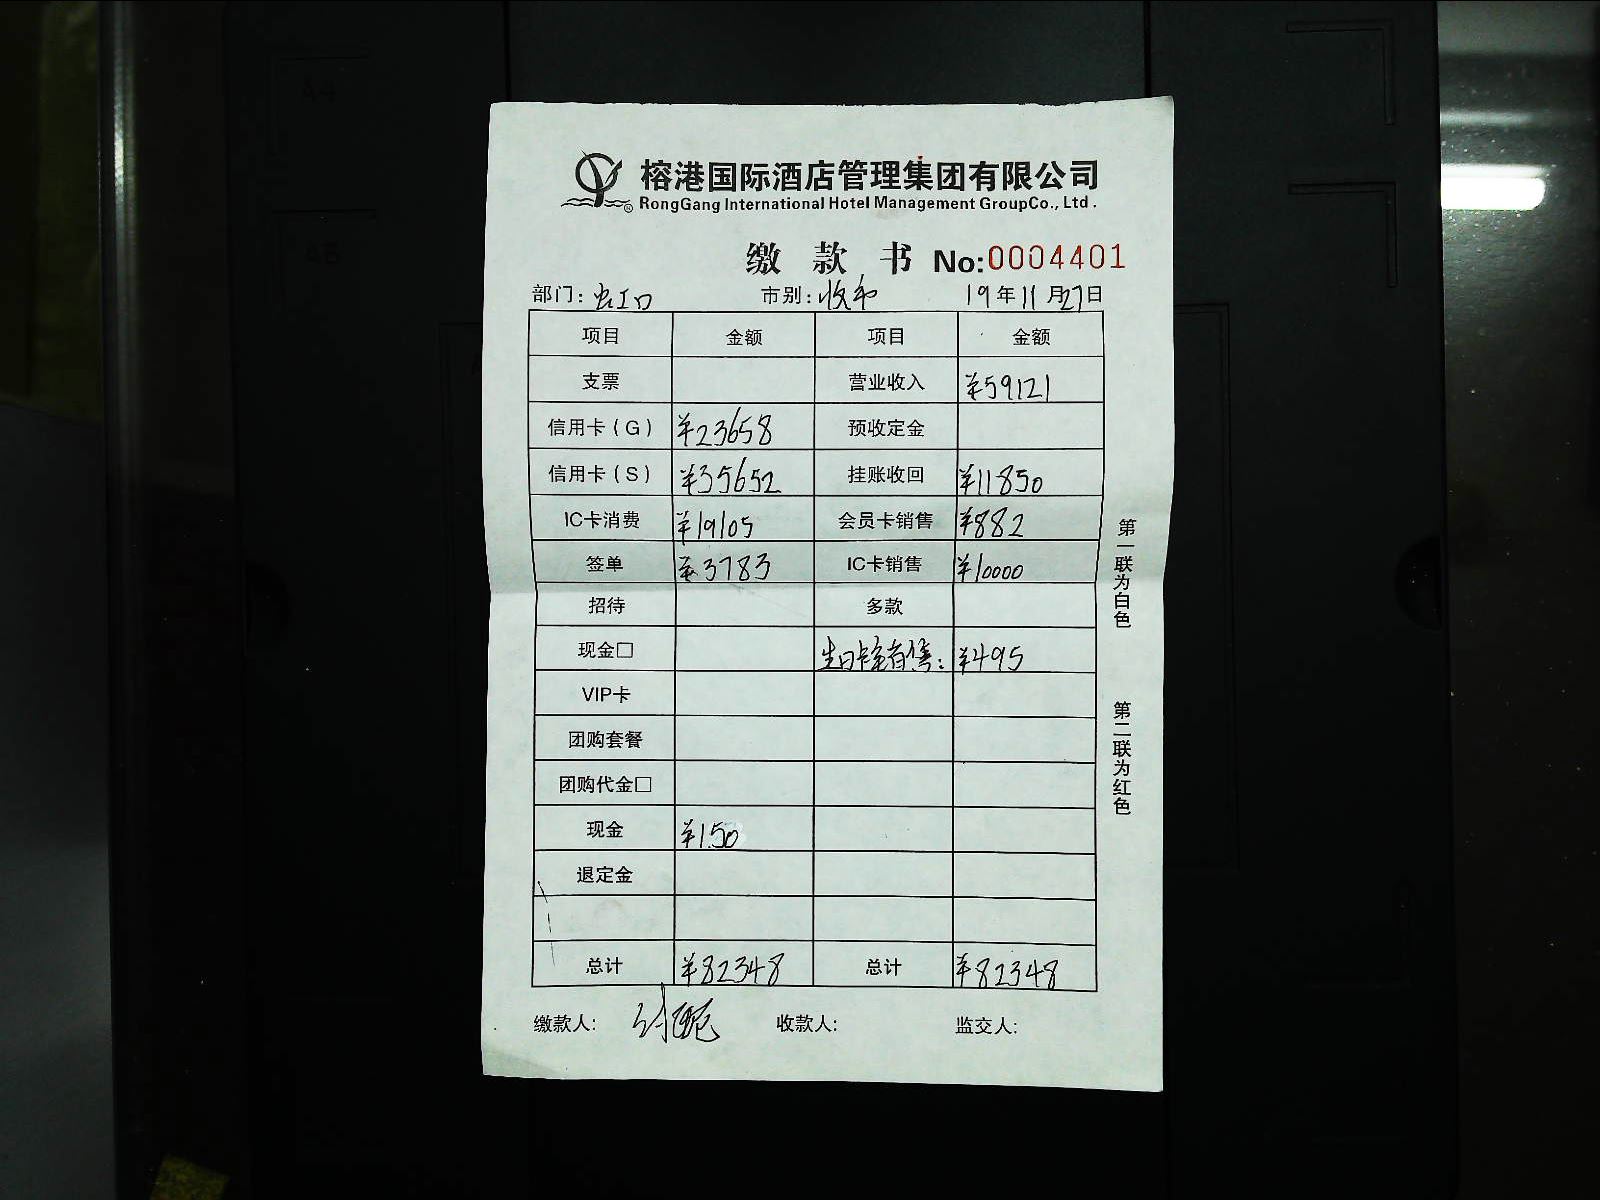 榕港国际酒店管理集团有限公司
RongGang International Hotel Management GroupCo., Ltd.
缴款书 No:0004401
部门: 虹口 市别: 收市 19年11月27日
项目 金额 项目 金额
支票 营业收入 ¥59121
信用卡(G) ¥23658 预收定金
信用卡(S) ¥35652 挂账收回 ¥11850
IC卡消费 ¥19105 会员卡销售 ¥882
签单 ¥3783 IC卡销售 ¥10000
招待 多款
现金□ 生日卡 售: ¥495
VIP卡
团购套餐
团购代金□
现金 ¥150
退定金
总计 ¥82348 总计 ¥82348
缴款人: 收款人: 监交人:
第一联为白色
第二联为红色
A4